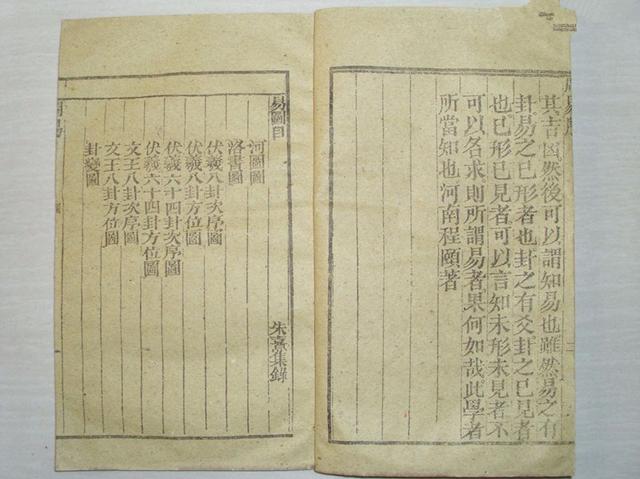 周易序
其吉凶然後可以謂知易也雖然易之有
卦易之已形者也卦之有爻卦之已見者
也已形已見者可以言知未形未見者不
可以名求則所謂易者果何如哉此學者
所當知也河南程頤著
易圖目
朱熹集錄
河圖圖
洛書圖
伏羲八卦次序圖
伏羲八卦方位圖
伏羲六十四卦次序圖
伏羲六十四卦方位圖
文王八卦次序圖
文王八卦方位圖
卦變圖